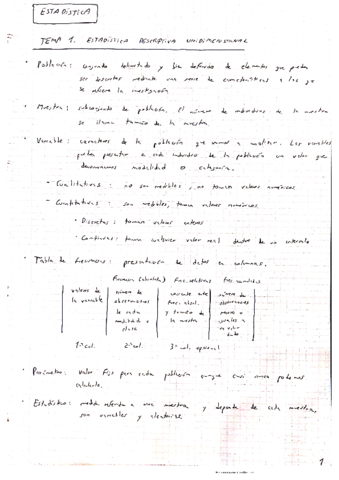 ESTADÍSTICA
TEMA 1. ESTADÍSTICA DESCRIPTIVA UNIDIMENSIONAL
· Población: conjunto delimitado y bien definido de elementos que pueden
ser descritos mediante una serie de características a los que
se refiere la investigación
· Muestra: subconjunto de población. El número de individuos de la muestra
se llama tamaño de la muestra
· Variable: caracteres de la población que vamos a analizar. Las variables
pueden presentar a cada individuo de la población un valor que
denominamos modalidad o categoría.
- Cualitativas: no son medibles, no toman valores numéricos
- Cuantitativas: son medibles, toman valores numéricos
· Discretas: toman valores enteros
· Continuas: toman cualquier valor real dentro de un intervalo
· Tabla de frecuencias: presentación de datos en columnas.
Frecuencia (absoluta) frec. relativas frec. acumuladas
valores de número de cociente entre número de
la variable observaciones frec. absol. observaciones
de cada y tamaño de menores o
modalidad o la muestra iguales a
clase un valor
dado
1ª col. 2ª col. 3ª col. opcional
· Parámetro: valor fijo para cada población aunque casi nunca podemos
calcularlo.
· Estadístico: medida referida a una muestra y depende de cada muestra,
son variables y aleatorios
1